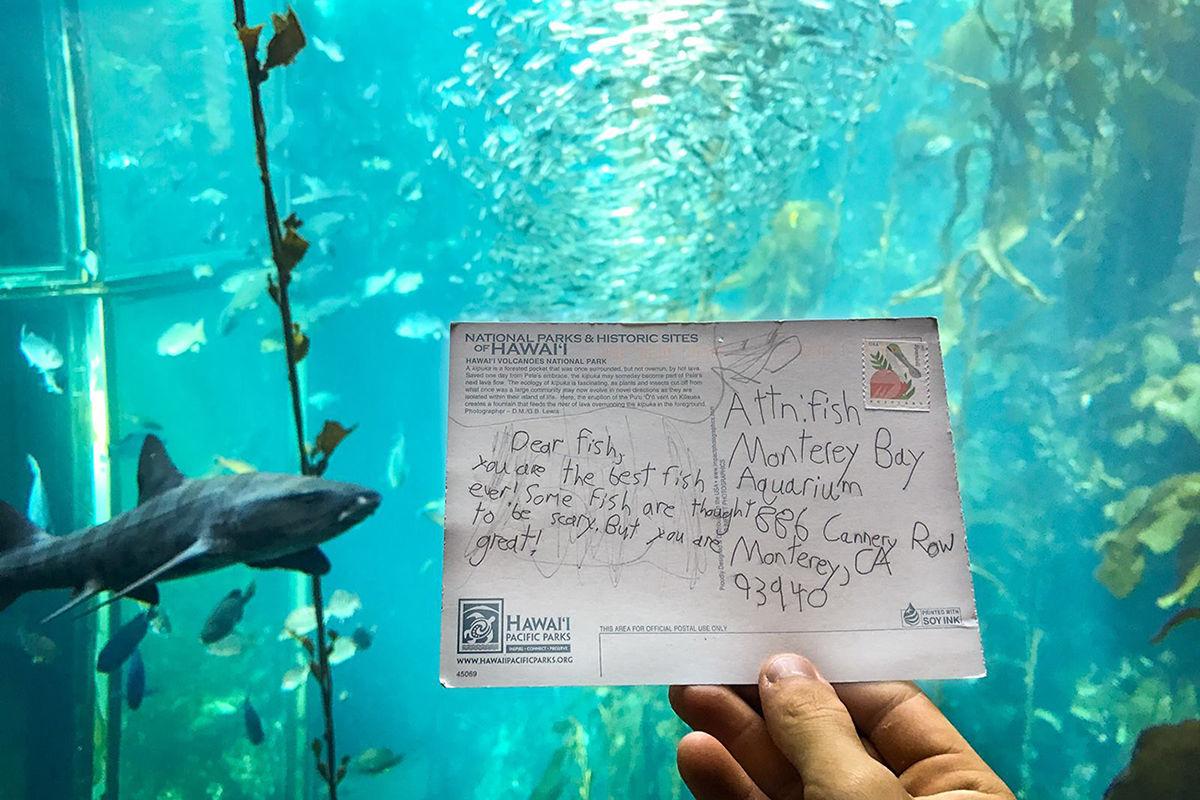 NATIONAL PARKS & HISTORIC SITES
OF HAWAI'I
HAWAI'I VOLCANOES NATIONAL PARK
A kīpuka is a forested pocket that was once surrounded, but not overrun, by hot lava.
Saved one day from Pele's embrace, the kīpuka may someday become part of Pele's
next lava flow. The ecology of kīpuka is fascinating, as plants and insects cut off from
what once was a large community may now evolve in novel directions as they are
isolated within their island of life. Here, the eruption of the Pu'u 'Ō'ō vent on Kīlauea
creates a fountain that feeds the river of lava overrunning the kīpuka in the foreground.
Photographer – D.M./G.B. Lewis
Dear fish,
you are the best fish
ever! Some fish are thought
to be scary. But you are
great!
HAWAI'I
PACIFIC PARKS
INSPIRE • CONNECT • PRESERVE
WWW.HAWAIIPACIFICPARKS.ORG
45069
USA
Attn: fish
Monterey Bay
Aquarium
886 Cannery Row
Monterey, CA
93940
THIS AREA FOR OFFICIAL POSTAL USE ONLY
PRINTED WITH
SOY INK